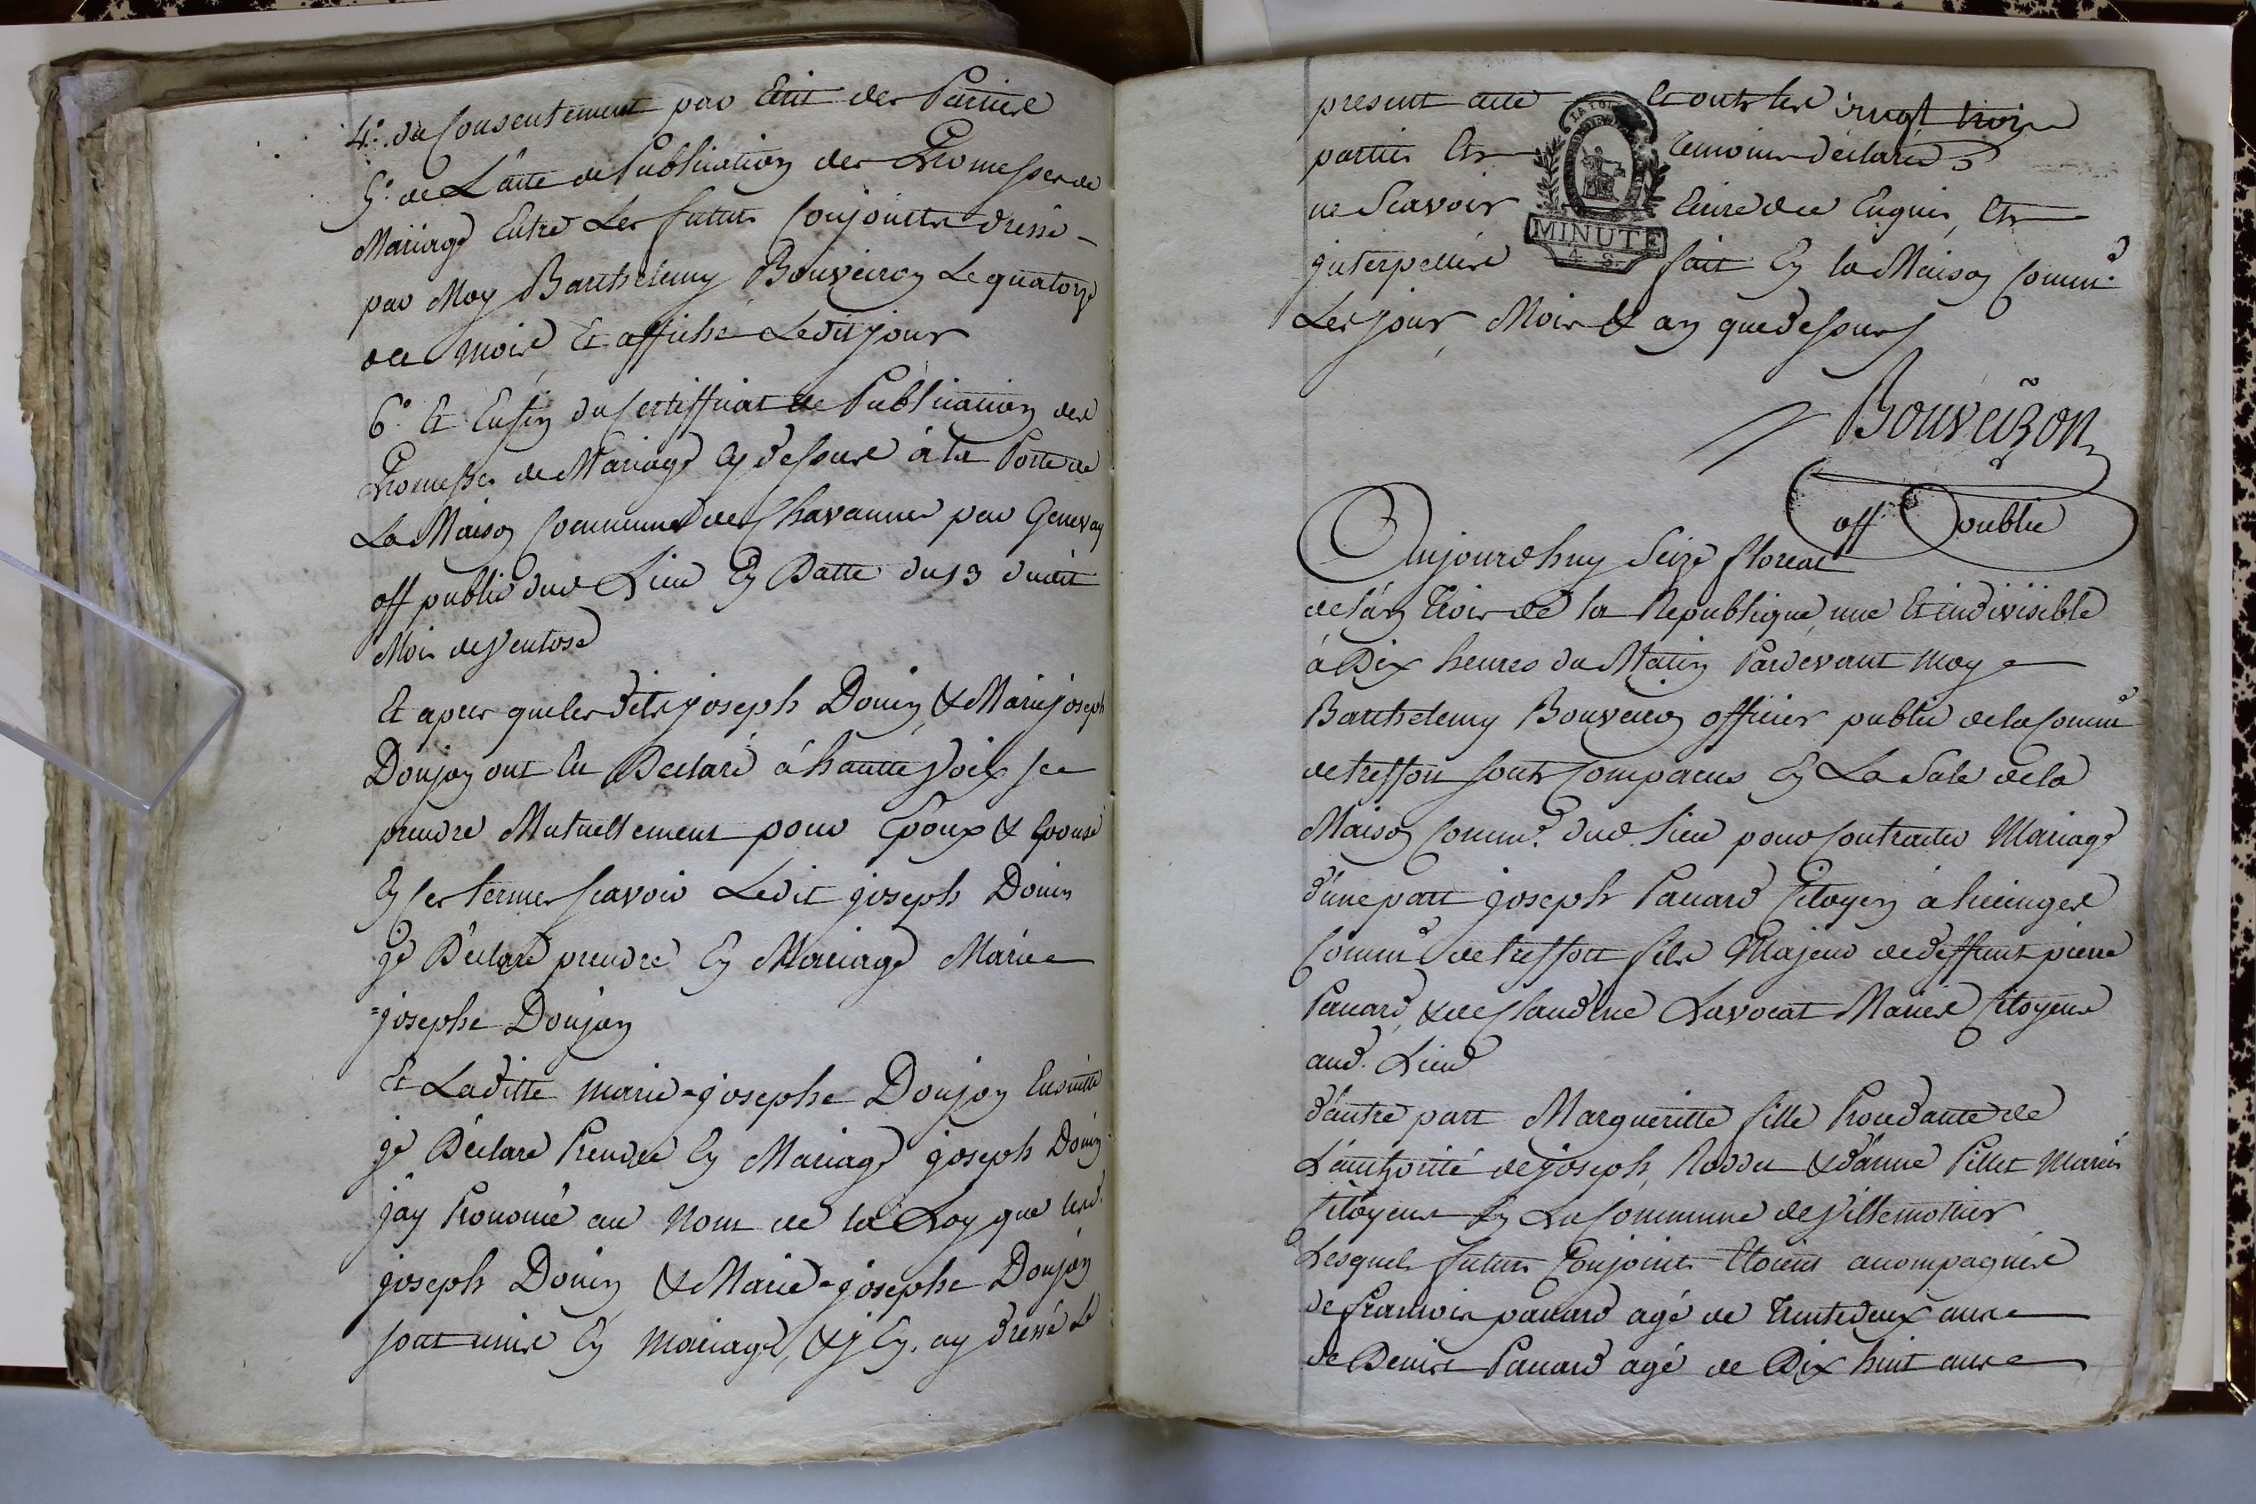 4.° du Consentement par Ecrit des Parties
5.° de L'acte de Publication des Promesses de
Mariage Entre Les futurs Conjoints dressé
par Moy Barthelemy Bouveiron Le quatorze
de mois Et affiché Ledit jour
6.° Et Enfin du Certifficat de Publication des
Promesses de Mariage Cy dessus à la Porte de
La Maison Commune de Chavannes par Genevay
off public dud Lieu En Datte du 13 dudit
Mois de Ventose
Et apres que lesdits joseph Douin & Marie joseph
Donjon ont Eu Declaré à hautte Voix se
prendre Mutuellement pour Epoux & Epouse
En ses termes scavoir Ledit joseph Douin
je Déclare prendre En Mariage Marie
=josephe Donjon
Et Laditte marie=josephe Donjon Ensuitte
je Déclare Prendre En Mariage joseph Douin
j'ay Prononcé au Nom de la Loy que lesd.
joseph Douin & Marie=josephe Donjon
sont unis En mariage, & j'En ay dressé Le
vingt trois
present acte Et ont les
parties Et temoins déclarés
ne Scavoir Ecrire de ce Enquis, Et
interpellés fait En la Maison Comm.e
Les jour, Mois & an que dessus
LA LOI
MINUTE
4. S.
Bouveiron
off public
Aujourdhuy Seize floreal
de l'an Trois de la Republique une Et indivisible
à Dix heures du Matin Pardevant moy
Barthelemy Bouveiron officier public de la Comm.e
de treffort sont Comparus En La Sale de la
Maison Comm.e dud. lieu pour Contracter Mariage
d'une part joseph Panard Citoyen à
Comm.e de treffort fils Majeur de deffunt pierre
Panard, & de Claudine Lavocat Mariés Citoyens
aud. Lieu
d'autre part Margueritte fille Procédante de
L'authorité de joseph & d'anne Pillet Mariés
Citoyens En La Commune de Villemotier
Lesquels futurs Conjoints Etoient acompagnés
de francois panard agé de Trente deux ans
de Denis Panard agé de Dix huit ans